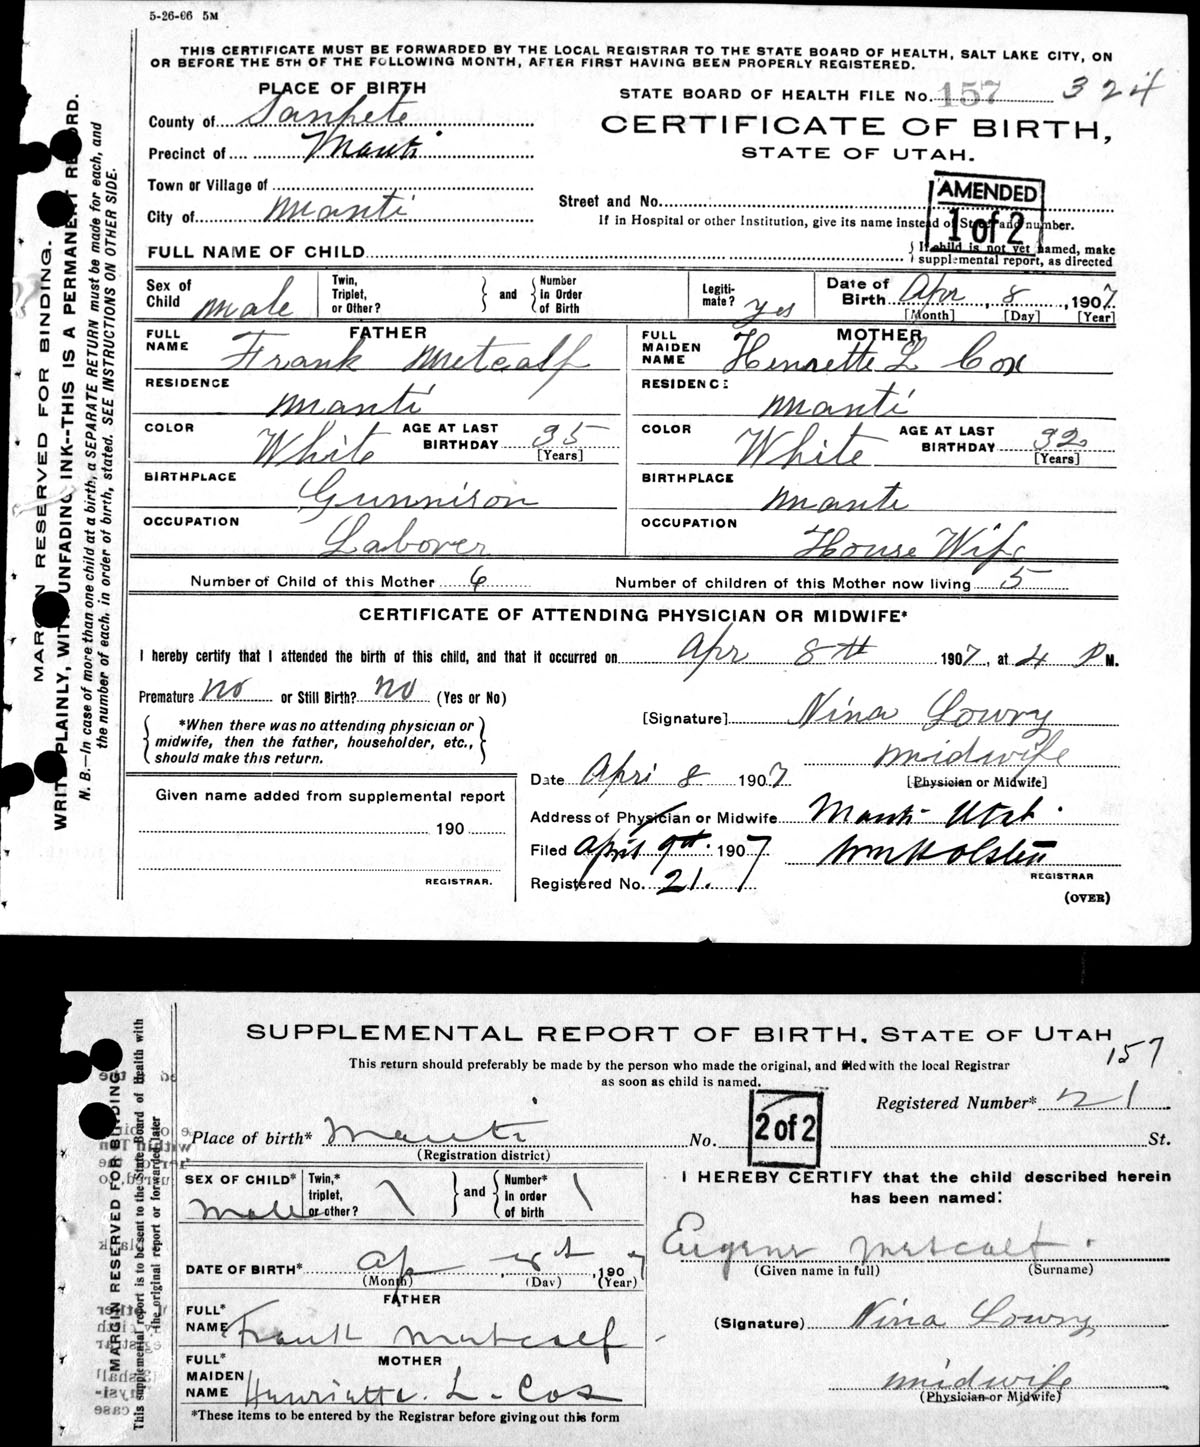 5-26-06 5M
THIS CERTIFICATE MUST BE FORWARDED BY THE LOCAL REGISTRAR TO THE STATE BOARD OF HEALTH, SALT LAKE CITY, ON
OR BEFORE THE 5TH OF THE FOLLOWING MONTH, AFTER FIRST HAVING BEEN PROPERLY REGISTERED.
PLACE OF BIRTH
STATE BOARD OF HEALTH FILE No. 157 324
County of Sanpete
CERTIFICATE OF BIRTH,
Precinct of Manti
STATE OF UTAH.
Town or Village of
AMENDED
1 of 2
Street and No.
City of Manti
If in Hospital or other Institution, give its name instead of Street and number.
FULL NAME OF CHILD
If child is not yet named, make
supplemental report, as directed
Sex of Child male
Twin, Triplet, or Other?
and
Number in Order of Birth
Legiti-mate? yes
Date of Birth Apr, 8, 1907
[Month] [Day] [Year]
FATHER
FULL NAME Frank Metcalf
RESIDENCE Manti
COLOR White
AGE AT LAST BIRTHDAY 35
[Years]
BIRTHPLACE Gunnison
OCCUPATION Laborer
MOTHER
FULL MAIDEN NAME Henrette L Cox
RESIDENCE Manti
COLOR White
AGE AT LAST BIRTHDAY 32
[Years]
BIRTHPLACE Manti
OCCUPATION House Wife
Number of Child of this Mother 6
Number of children of this Mother now living 5
CERTIFICATE OF ATTENDING PHYSICIAN OR MIDWIFE*
I hereby certify that I attended the birth of this child, and that it occurred on Apr 8th 1907, at 4 P M.
Premature no or Still Birth? no (Yes or No)
*When there was no attending physician or
midwife, then the father, householder, etc.,
should make this return.
[Signature] Nina Lowry
midwife
[Physician or Midwife]
Given name added from supplemental report
190
REGISTRAR.
Date Apri 8 1907
Address of Physician or Midwife Manti Utah.
Filed April 9th. 1907 Wm H Olsten
REGISTRAR
Registered No. 21.
(OVER)
MARGIN RESERVED FOR BINDING.
WRITE PLAINLY, WITH UNFADING INK--THIS IS A PERMANENT RECORD.
N. B.—In case of more than one child at a birth, a SEPARATE RETURN must be made for each, and
the number of each, in order of birth, stated. SEE INSTRUCTIONS ON OTHER SIDE.
SUPPLEMENTAL REPORT OF BIRTH, STATE OF UTAH
157
This return should preferably be made by the person who made the original, and filed with the local Registrar
as soon as child is named.
Registered Number* 21
2 of 2
Place of birth* Manti No. St.
(Registration district)
SEX OF CHILD* Male
Twin,* triplet, or other?
and
Number* in order of birth
DATE OF BIRTH* Ap 8th 1907
(Month) (Day) (Year)
FATHER
FULL* NAME Frank Metcalf
MOTHER
FULL* MAIDEN NAME Henriette. L. Cox
*These items to be entered by the Registrar before giving out this form
I HEREBY CERTIFY that the child described herein
has been named:
Eugene Metcalf.
(Given name in full) (Surname)
(Signature) Nina Lowry
midwife
(Physician or Midwife)
MARGIN RESERVED FOR BINDING
This supplemental report is to be sent to the State Board of Health with
the original report or forwarded later